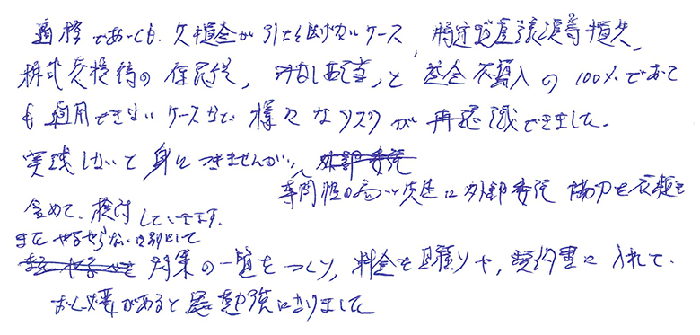 適格であっても、欠損金が引き継げないケース、特定資産譲渡等損失、
株式交換時の 、みなし配当、と 資金不算入の100%であって
も適用できないケースなど、様々なリスクが再認識できました。
実践しないと身につきませんが、
専門性の高い 外部委託 協力を依頼を
含めて、検討しています。
またやるやらないは別として
対策の一覧をつくり、料金を見積りや、契約書に入れて
おく必要があると 勉強になりました